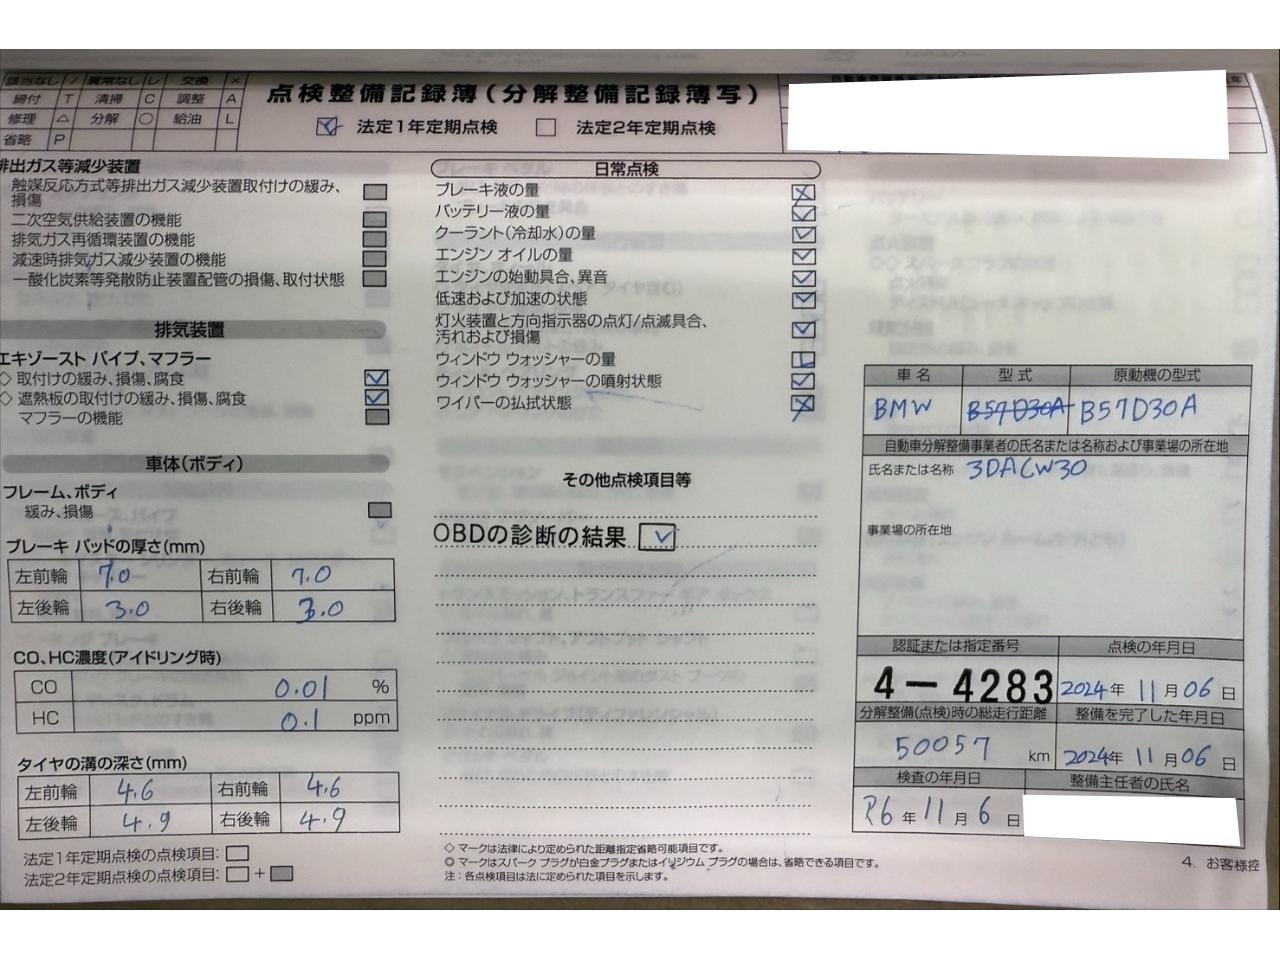 該当なし / 異常なし レ 交換 ×
締付 T 清掃 C 調整 A
修理 △ 分解 ○ 給油 L
省略 P
点検整備記録簿(分解整備記録簿写)
法定1年定期点検 法定2年定期点検
排出ガス等減少装置
触媒反応方式等排出ガス減少装置取付けの緩み、
損傷
二次空気供給装置の機能
排気ガス再循環装置の機能
減速時排気ガス減少装置の機能
一酸化炭素等発散防止装置配管の損傷、取付状態
排気装置
エキゾースト パイプ、マフラー
◇ 取付けの緩み、損傷、腐食
◇ 遮熱板の取付けの緩み、損傷、腐食
マフラーの機能
車体(ボディ)
フレーム、ボディ
緩み、損傷
ブレーキ パッドの厚さ(mm)
左前輪 7.0 右前輪 7.0
左後輪 3.0 右後輪 3.0
CO、HC濃度(アイドリング時)
CO 0.01 %
HC 0.1 ppm
タイヤの溝の深さ(mm)
左前輪 4.6 右前輪 4.6
左後輪 4.9 右後輪 4.9
法定1年定期点検の点検項目:
法定2年定期点検の点検項目: +
日常点検
ブレーキ液の量
バッテリー液の量
クーラント(冷却水)の量
エンジン オイルの量
エンジンの始動具合、異音
低速および加速の状態
灯火装置と方向指示器の点灯/点滅具合、
汚れおよび損傷
ウィンドウ ウォッシャーの量 L
ウィンドウ ウォッシャーの噴射状態
ワイパーの払拭状態
その他点検項目等
OBDの診断の結果
◇ マークは法律により定められた距離指定省略可能項目です。
◎ マークはスパーク プラグが白金プラグまたはイリジウム プラグの場合は、省略できる項目です。
注：各点検項目は法に定められた項目を示します。
車名 型式 原動機の型式
BMW B57D30A B57D30A
自動車分解整備事業者の氏名または名称および事業場の所在地
氏名または名称 3DACW30
事業場の所在地
認証または指定番号 点検の年月日
4-4283 2024年 11月06日
分解整備(点検)時の総走行距離 整備を完了した年月日
50057 km 2024年 11月06日
検査の年月日 整備主任者の氏名
R6年11月6日
4. お客様控